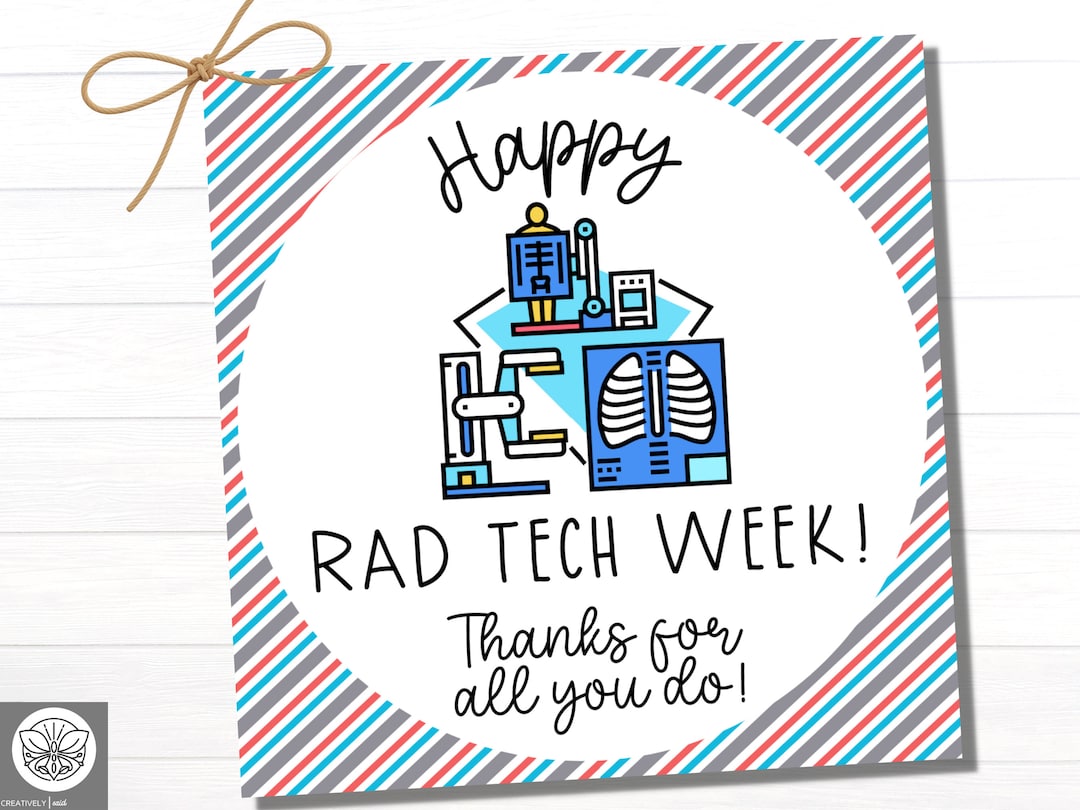 Happy
RAD TECH WEEK!
Thanks for
all you do!
CREATIVELY | said